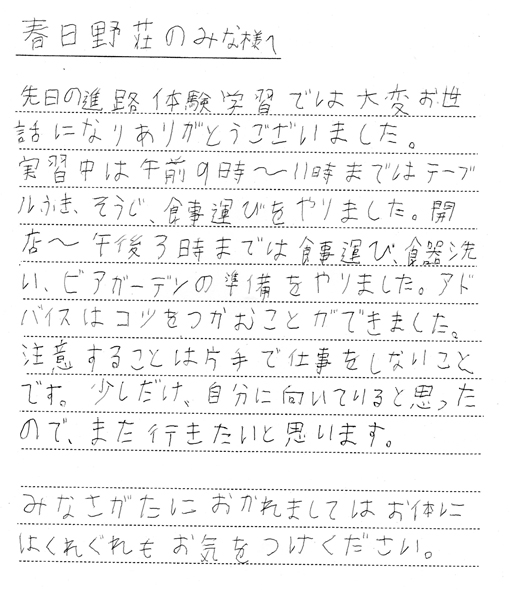 春日野荘のみな様へ
先日の進路体験学習では大変お世
話になりありがとうございました。
実習中は午前9時～11時まではテーブ
ルふき、そうじ、食事運びをやりました。開
店～午後3時までは食事運び、食器洗
い、ビアガーデンの準備をやりました。アド
バイスはコツをつかむことができました。
注意することは片手で仕事をしないこと
です。少しだけ、自分に向いていると思った
ので、また行きたいと思います。
みなさがたにおかれましてはお体に
はくれぐれもお気をつけください。